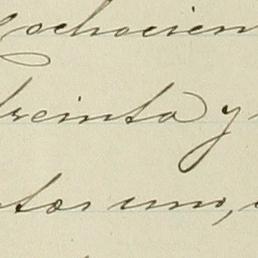 ochocien
treinta y
tos uno,